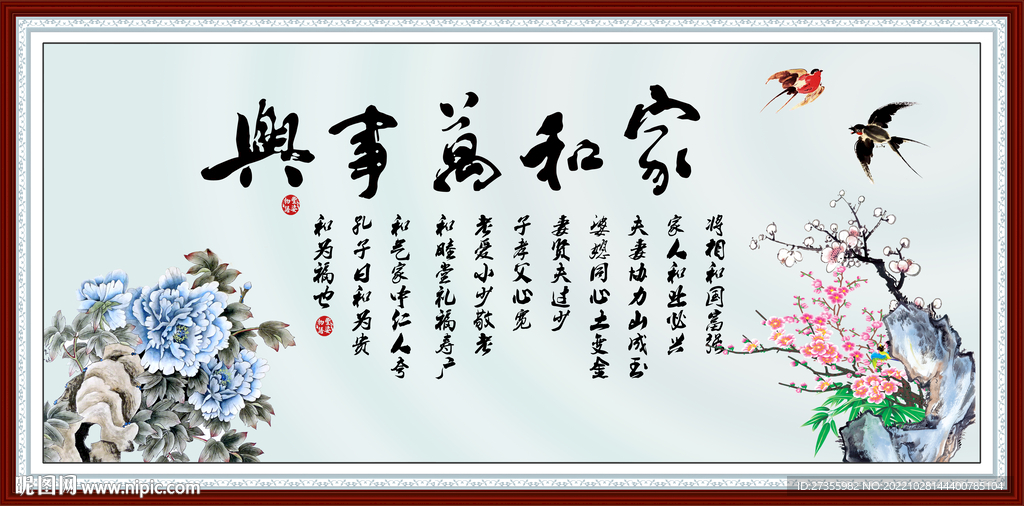 家和萬事興
将相和国富强
家人和业必兴
夫妻协力山成玉
婆媳同心土变金
妻贤夫过少
子孝父心宽
老爱小少敬老
和睦堂礼福寿广
和气家中仁人夸
孔子曰和为贵
和为福也
昵图网 www.nipic.com
ID:27355982 NO:20221028144400765104